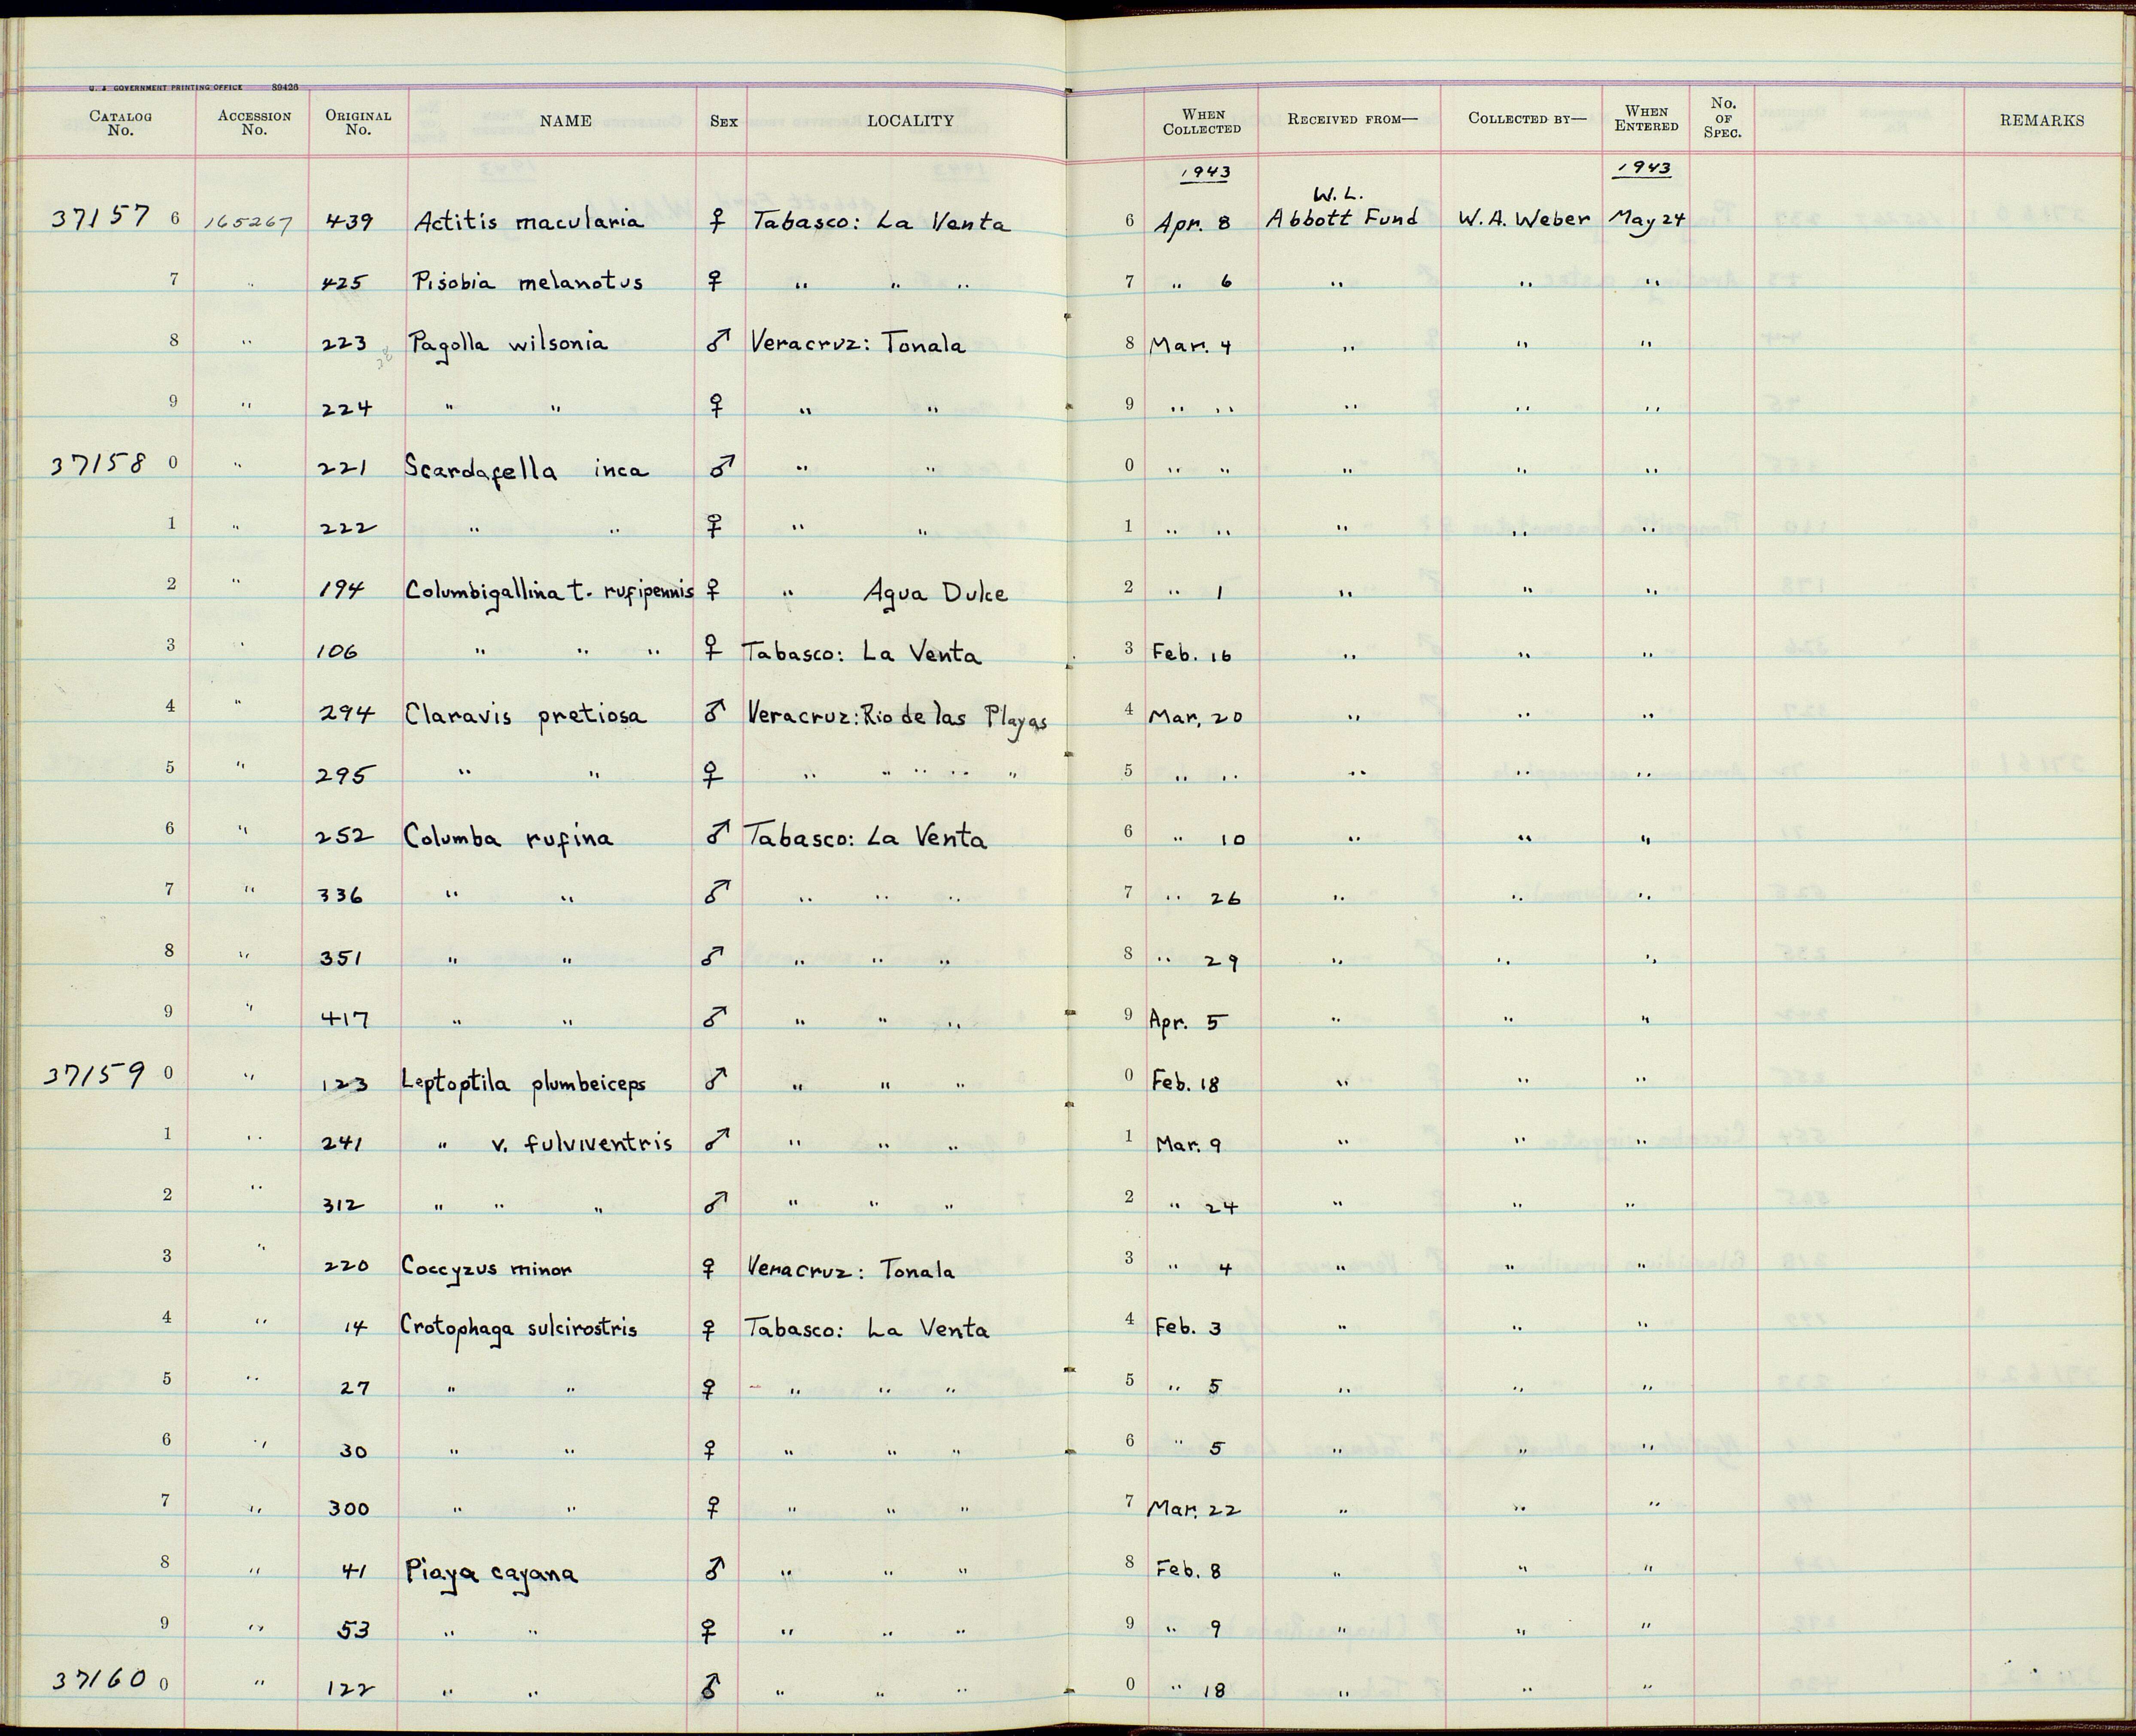 U. S. GOVERNMENT PRINTING OFFICE 89426
CATALOG No. ACCESSION No. ORIGINAL No. NAME SEX LOCALITY WHEN COLLECTED RECEIVED FROM— COLLECTED BY— WHEN ENTERED No. OF SPEC. REMARKS
1943 1943
W. L.
37157 6 165267 439 Actitis macularia ♀ Tabasco: La Venta 6 Apr. 8 Abbott Fund W. A. Weber May 24
7 " 425 Pisobia melanotus ♀ " " " 7 " 6 " " "
8 " 223 Pagolla wilsonia ♂ Veracruz: Tonala 8 Mar. 4 " " "
9 " 224 " " ♀ " " 9 " " " " "
37158 0 " 221 Scardafella inca ♂ " " 0 " " " " "
1 " 222 " " ♀ " " 1 " " " " "
2 " 194 Columbigallina t. rufipennis ♀ " Agua Dulce 2 " 1 " " "
3 " 106 " " " ♀ Tabasco: La Venta 3 Feb. 16 " " "
4 " 294 Claravis pretiosa ♂ Veracruz: Rio de las Playas 4 Mar. 20 " " "
5 " 295 " " ♀ " " " " " 5 " " " " "
6 " 252 Columba rufina ♂ Tabasco: La Venta 6 " 10 " " "
7 " 336 " " ♂ " " " 7 " 26 " " "
8 " 351 " " ♂ " " " 8 " 29 " " "
9 " 417 " " ♂ " " " 9 Apr. 5 " " "
37159 0 " 123 Leptoptila plumbeiceps ♂ " " " 0 Feb. 18 " " "
1 " 241 " v. fulviventris ♂ " " " 1 Mar. 9 " " "
2 " 312 " " " ♂ " " " 2 " 24 " " "
3 " 220 Coccyzus minor ♀ Veracruz: Tonala 3 " 4 " " "
4 " 14 Crotophaga sulcirostris ♀ Tabasco: La Venta 4 Feb. 3 " " "
5 " 27 " " ♀ " " " 5 " 5 " " "
6 " 30 " " ♀ " " " 6 " 5 " " "
7 " 300 " " ♀ " " " 7 Mar. 22 " " "
8 " 41 Piaya cayana ♂ " " " 8 Feb. 8 " " "
9 " 53 " " ♀ " " " 9 " 9 " " "
37160 0 " 122 " " ♂ " " " 0 " 18 " " "